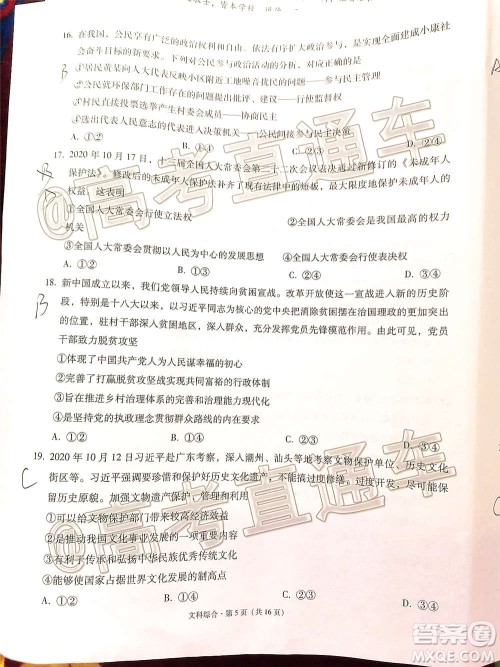 16. 在我国，公民享有广泛的政治权利和自由。依法有序扩大政治参与，是实现全面建成小康社会
目标的新要求。下列对公民参与政治活动的分析，对应正确的是
B
①居民黄某向人大代表反映小区附近工地噪音扰民的问题——参与民主管理
②公民就环保部门工作存在的问题提出批评和建议——行使监督权
③村民投票选举产生村委会成员——民主选举
④选出代表人民意志的代表进入决策机关——公民间接参与民主决策
A. ①②
B. ①③
C. ②④
D. ③④
17. 2020 年 10 月 17 日，十三届全国人大常委会第二十二次会议表决通过新修订的《未成年人
保护法》。修改后的未成年人保护法针对现有法律中的短板，大幅增加保护未成年人的
权益。这表明
①全国人大常委会行使立法权
②全国人大常委会是我国最高的权力
机关
③全国人大常委会贯彻以人民为中心的发展思想
④全国人大常委会行使表决权
A. ①②
B. ①③
C. ②④
D. ③④
18. 新中国成立以来，我们党领导人民持续向贫困宣战。改革开放使这一宣战进入新的历史阶
段，特别是十八大以来，以习近平同志为核心的党中央把贫困摆在治国理政的重要位
置，驻村干部深入贫困地区，深入群众，充分发挥党支部和党员先锋模范作用。由此可见，党员
干部致力脱贫攻坚
B
①体现了中国共产党人为人民谋幸福的初心
②完善了打赢脱贫攻坚战实现共同富裕的行政体制
③旨在推进乡村治理体系和治理能力现代化
④是坚持党的执政理念和贯彻群众路线的必然要求
A. ①②
B. ①④
C. ②③
D. ③④
19. 2020 年 10 月 12 日习近平赴广东考察，深入潮州、汕头等地考察文物保护工作、历史文化
街区等。习近平强调要珍惜和保护好历史文化遗产，搞好修复，尽可能
留历史原貌。加强文物保护
C
①可以给文物保护部门带来较高经济效益
②有利于推动我国文化事业的发展和繁荣
③有利于保护和弘扬中华民族优秀传统文化
④能够使国家占据世界文化发展的制高点
A. ①②
B. ①④
C. ②③
D. ③④
文科综合·第 5 页（共 16 页）
@高考直通车
@高考直通车